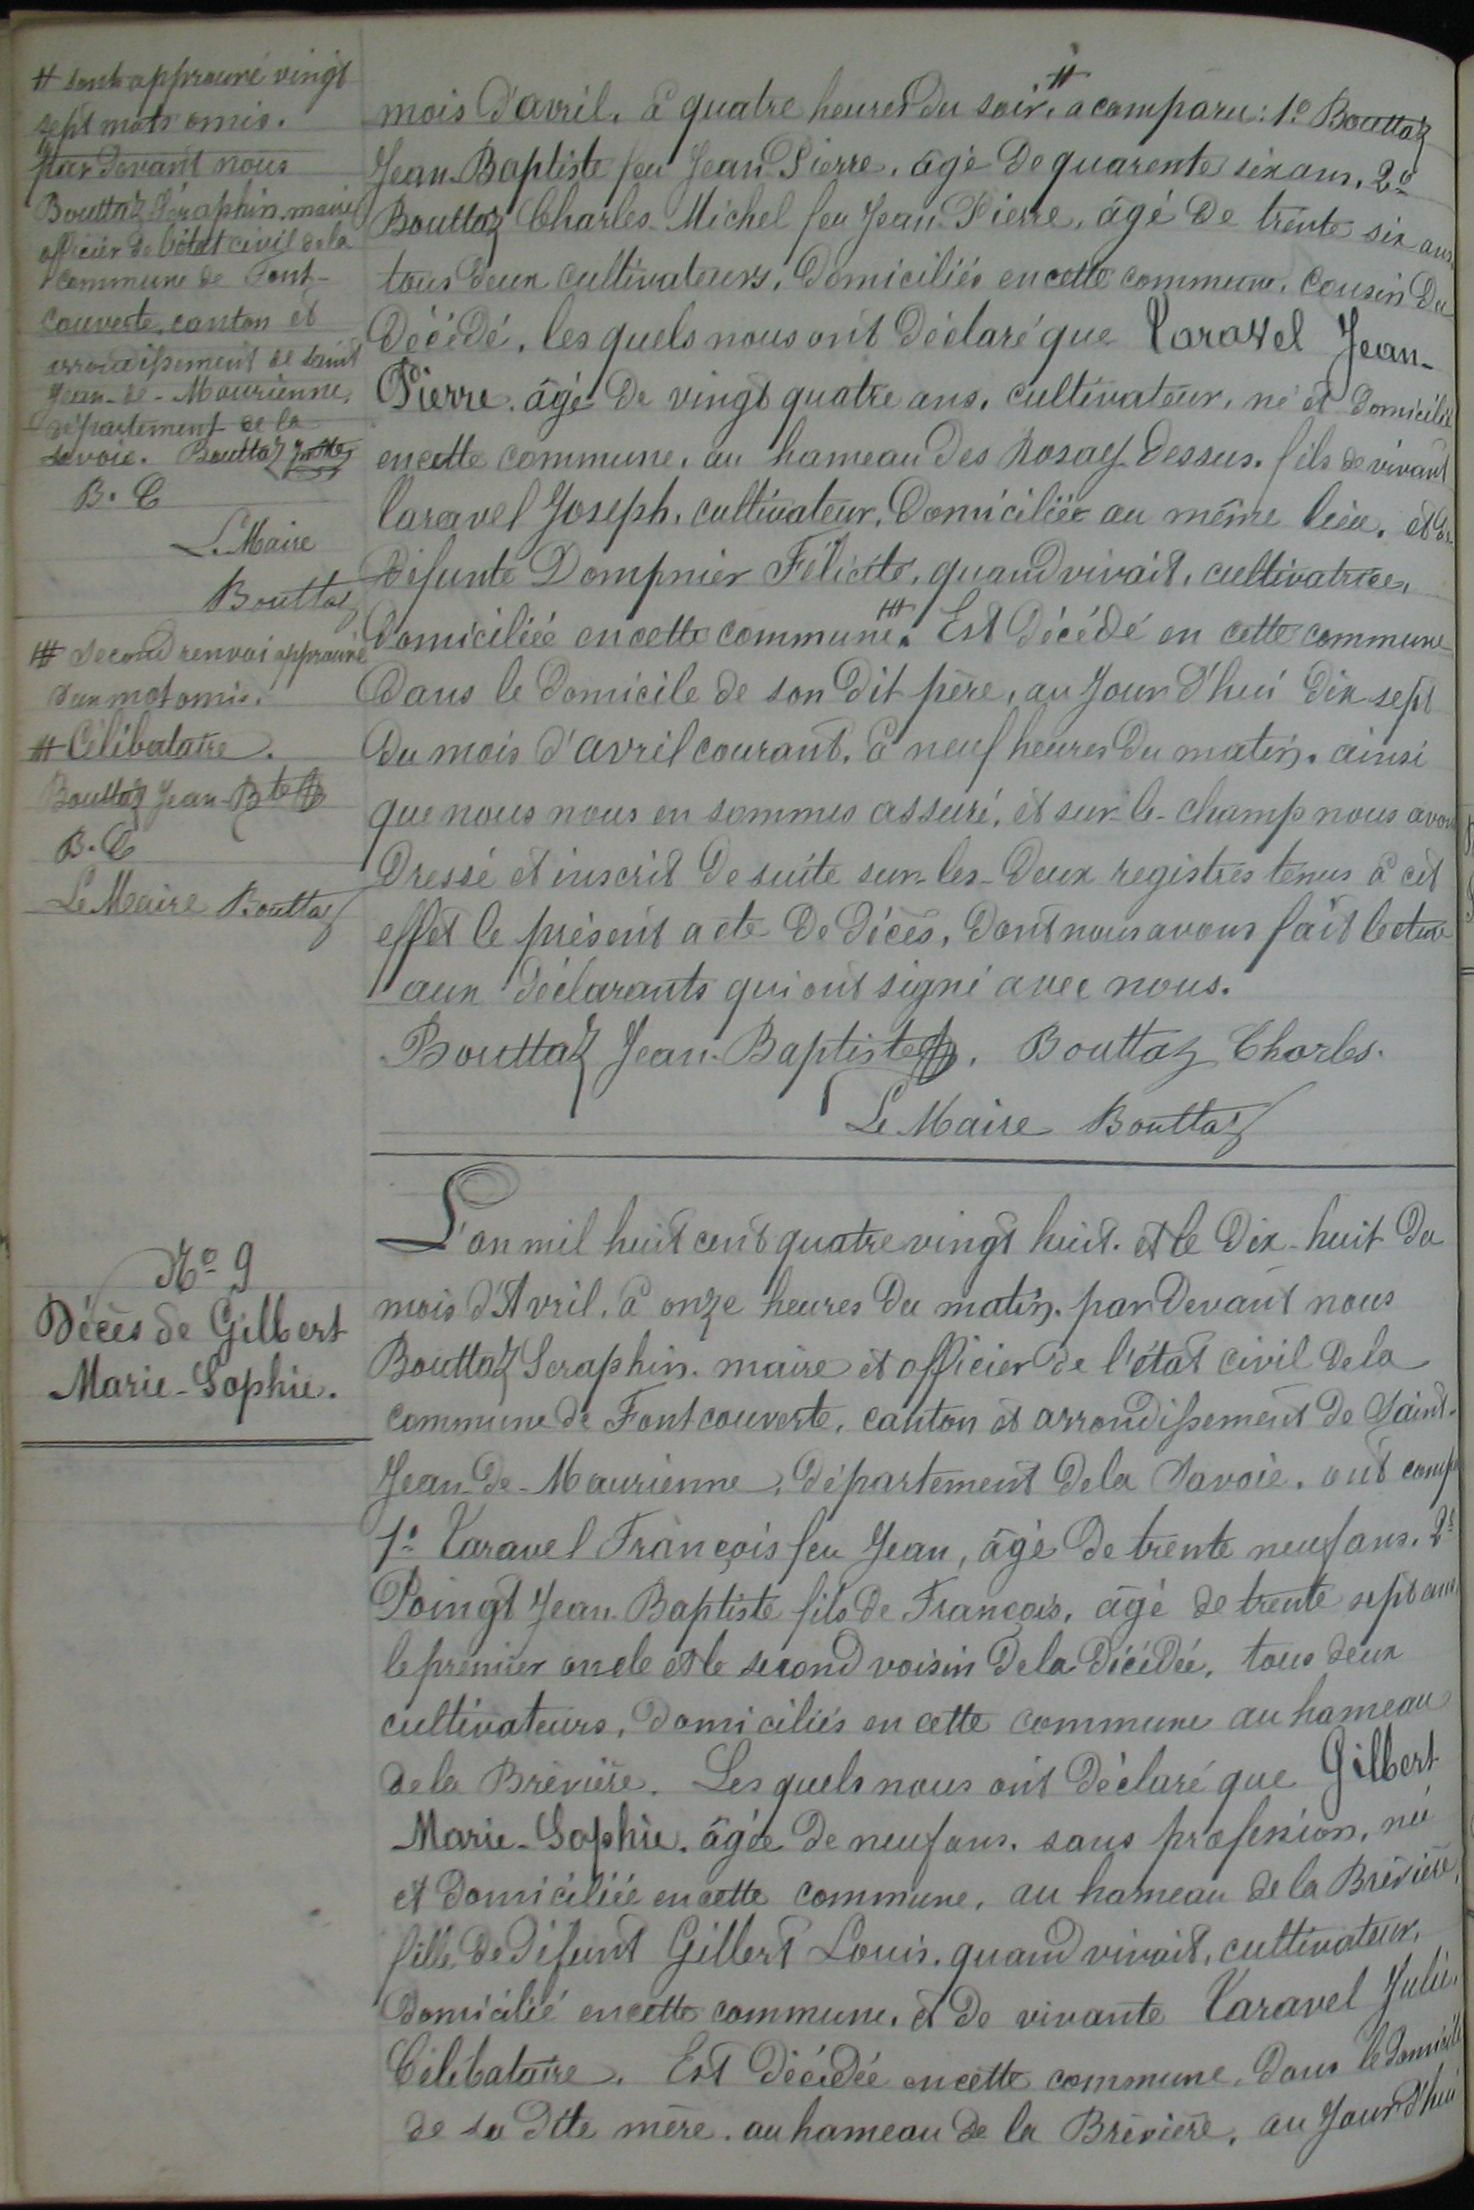 # sont approuvé vingt
sept mots omis.
par devant nous
Bouttaz Séraphin, maire
officier de l'état civil de la
commune de Font-
couverte, canton et
arrondissement de Saint
Jean-de-Maurienne,
département de la
Savoie. Bouttaz
B. C
Le Maire
Bouttaz
## second renvoi approuvé
d'un mot omis.
# Célibataire.
Bouttaz Jean-Bte
B. C
Le Maire Bouttaz
mois d'avril, à quatre heures du soir, # a comparu: 1º Bouttaz
Jean-Baptiste feu Jean Pierre, âgé de quarente six ans, 2º
Bouttaz Charles-Michel feu Jean-Pierre, âgé de trente six ans
tous deux cultivateurs, domiciliés en cette commune, cousin du
décédé, les quels nous ont déclaré que Taravel Jean-
Pierre, âgé de vingt quatre ans, cultivateur, né et domicilié
en cette commune, au hameau des Rosay dessus, fils de vivant
Taravel Joseph, cultivateur, domiciliée au même lieu, et de
défunte Dompnier Félicité, quand vivait, cultivatrice,
domiciliée en cette commune. ## Est décédé en cette commune
dans le domicile de son dit père, au jour d'hui dix sept
du mois d'avril courant, à neuf heures du matin, ainsi
que nous nous en sommes assuré, et sur-le-champ nous avons
dressé et inscrit de suite sur-les-deux registres tenus à cet
effet le présent acte de décès, dont nous avons fait lecture
aux déclarants qui ont signé avec nous.
Bouttaz Jean-Baptiste. Bouttaz Charles.
Le Maire Bouttaz
Nº 9
Décès de Gilbert
Marie-Sophie.
L'an mil huit cent quatre vingt huit. et le dix-huit du
mois d'Avril, à onze heures du matin, par devant nous
Bouttaz Seraphin, maire et officier de l'état civil de la
commune de Fontcouverte, canton et arrondissement de Saint-
Jean-de-Maurienne, département de la Savoie, ont comp
1º Taravel François feu Jean, âgé de trente neuf ans, 2º
Poingt Jean-Baptiste fils de François, âgé de trente sept ans,
le premier oncle et le second voisin de la décédée, tous deux
cultivateurs, domiciliés en cette commune au hameau
de la Brévière. Les quels nous ont déclaré que Gilbert
Marie-Sophie, âgée de neuf ans, sans profession, née
et domiciliée en cette commune, au hameau de la Brévière,
fille de défunt Gilbert Louis, quand vivait, cultivateur,
domicilié en cette commune, et de vivante Taravel Julie,
Célibataire. Est décédée en cette commune, dans le domicile
de sa dite mère, au hameau de la Brévière, au jour d'hui